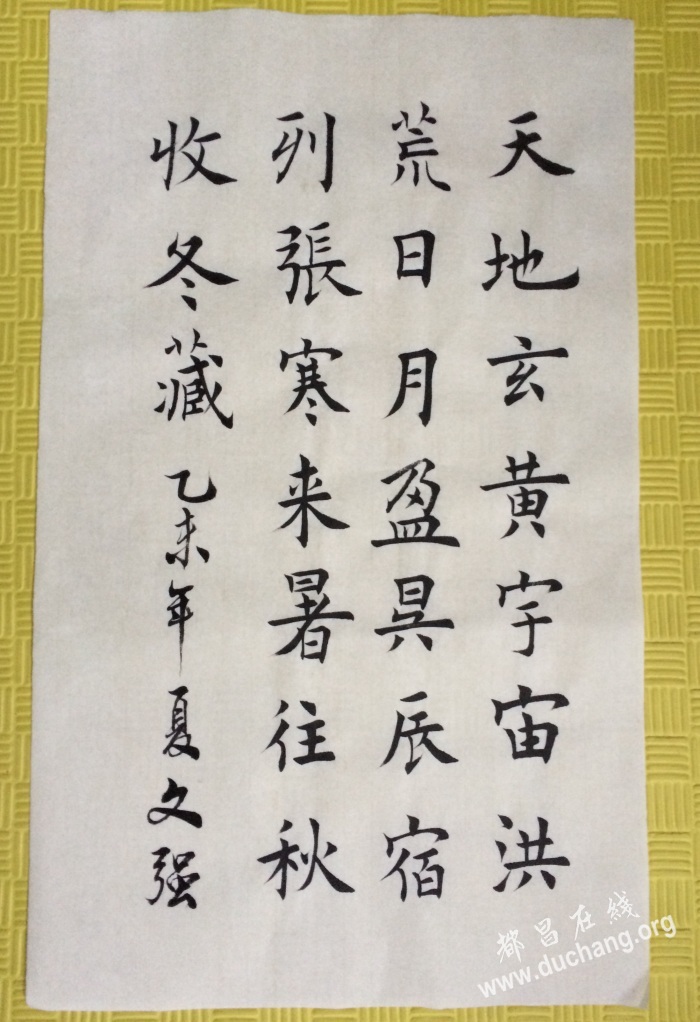 天地玄黄宇宙洪
荒日月盈昃辰宿
列張寒来暑往秋
收冬藏 乙未年夏文强
都昌在线
www.duchang.org